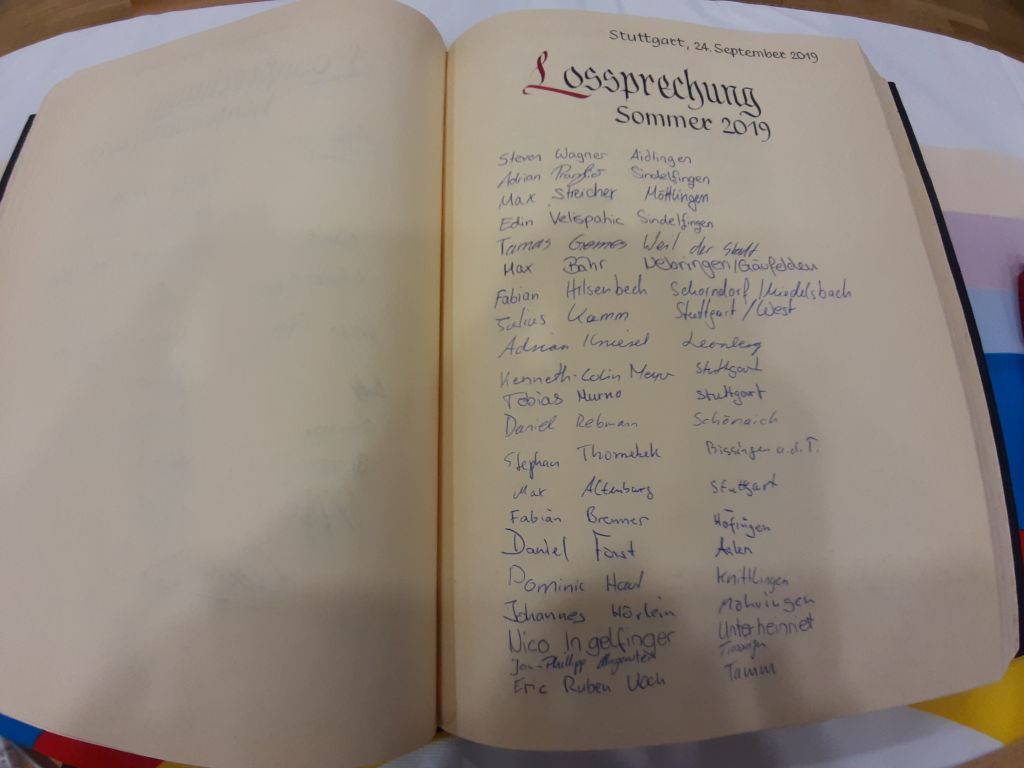 Stuttgart, 24. September 2019
Lossprechung
Sommer 2019
Steven Wagner Aidlingen
Adrian Sindelfingen
Max Streicher Möttlingen
Edin Velispahic Sindelfingen
Tamas Weil der Stadt
Max Bahr Nebringen/Gäufelden
Fabian Hilsenbech Schorndorf/Mundelsbach
Julius Kamm Stuttgart/West
Adrian Kniesel Leonberg
Kenneth-Colin Meyer Stuttgart
Tobias Murno Stuttgart
Daniel Rebmann Schönaich
Stephan Bissingen a.d.T.
Max Altenburg Stuttgart
Fabian Brenner Höfingen
Daniel Forst Aalen
Dominic Knittlingen
Johannes Hörlein Möhringen
Nico Ingelfinger Unterheinriet
Jan-Phillipp
Eric Ruben Voch Tamm